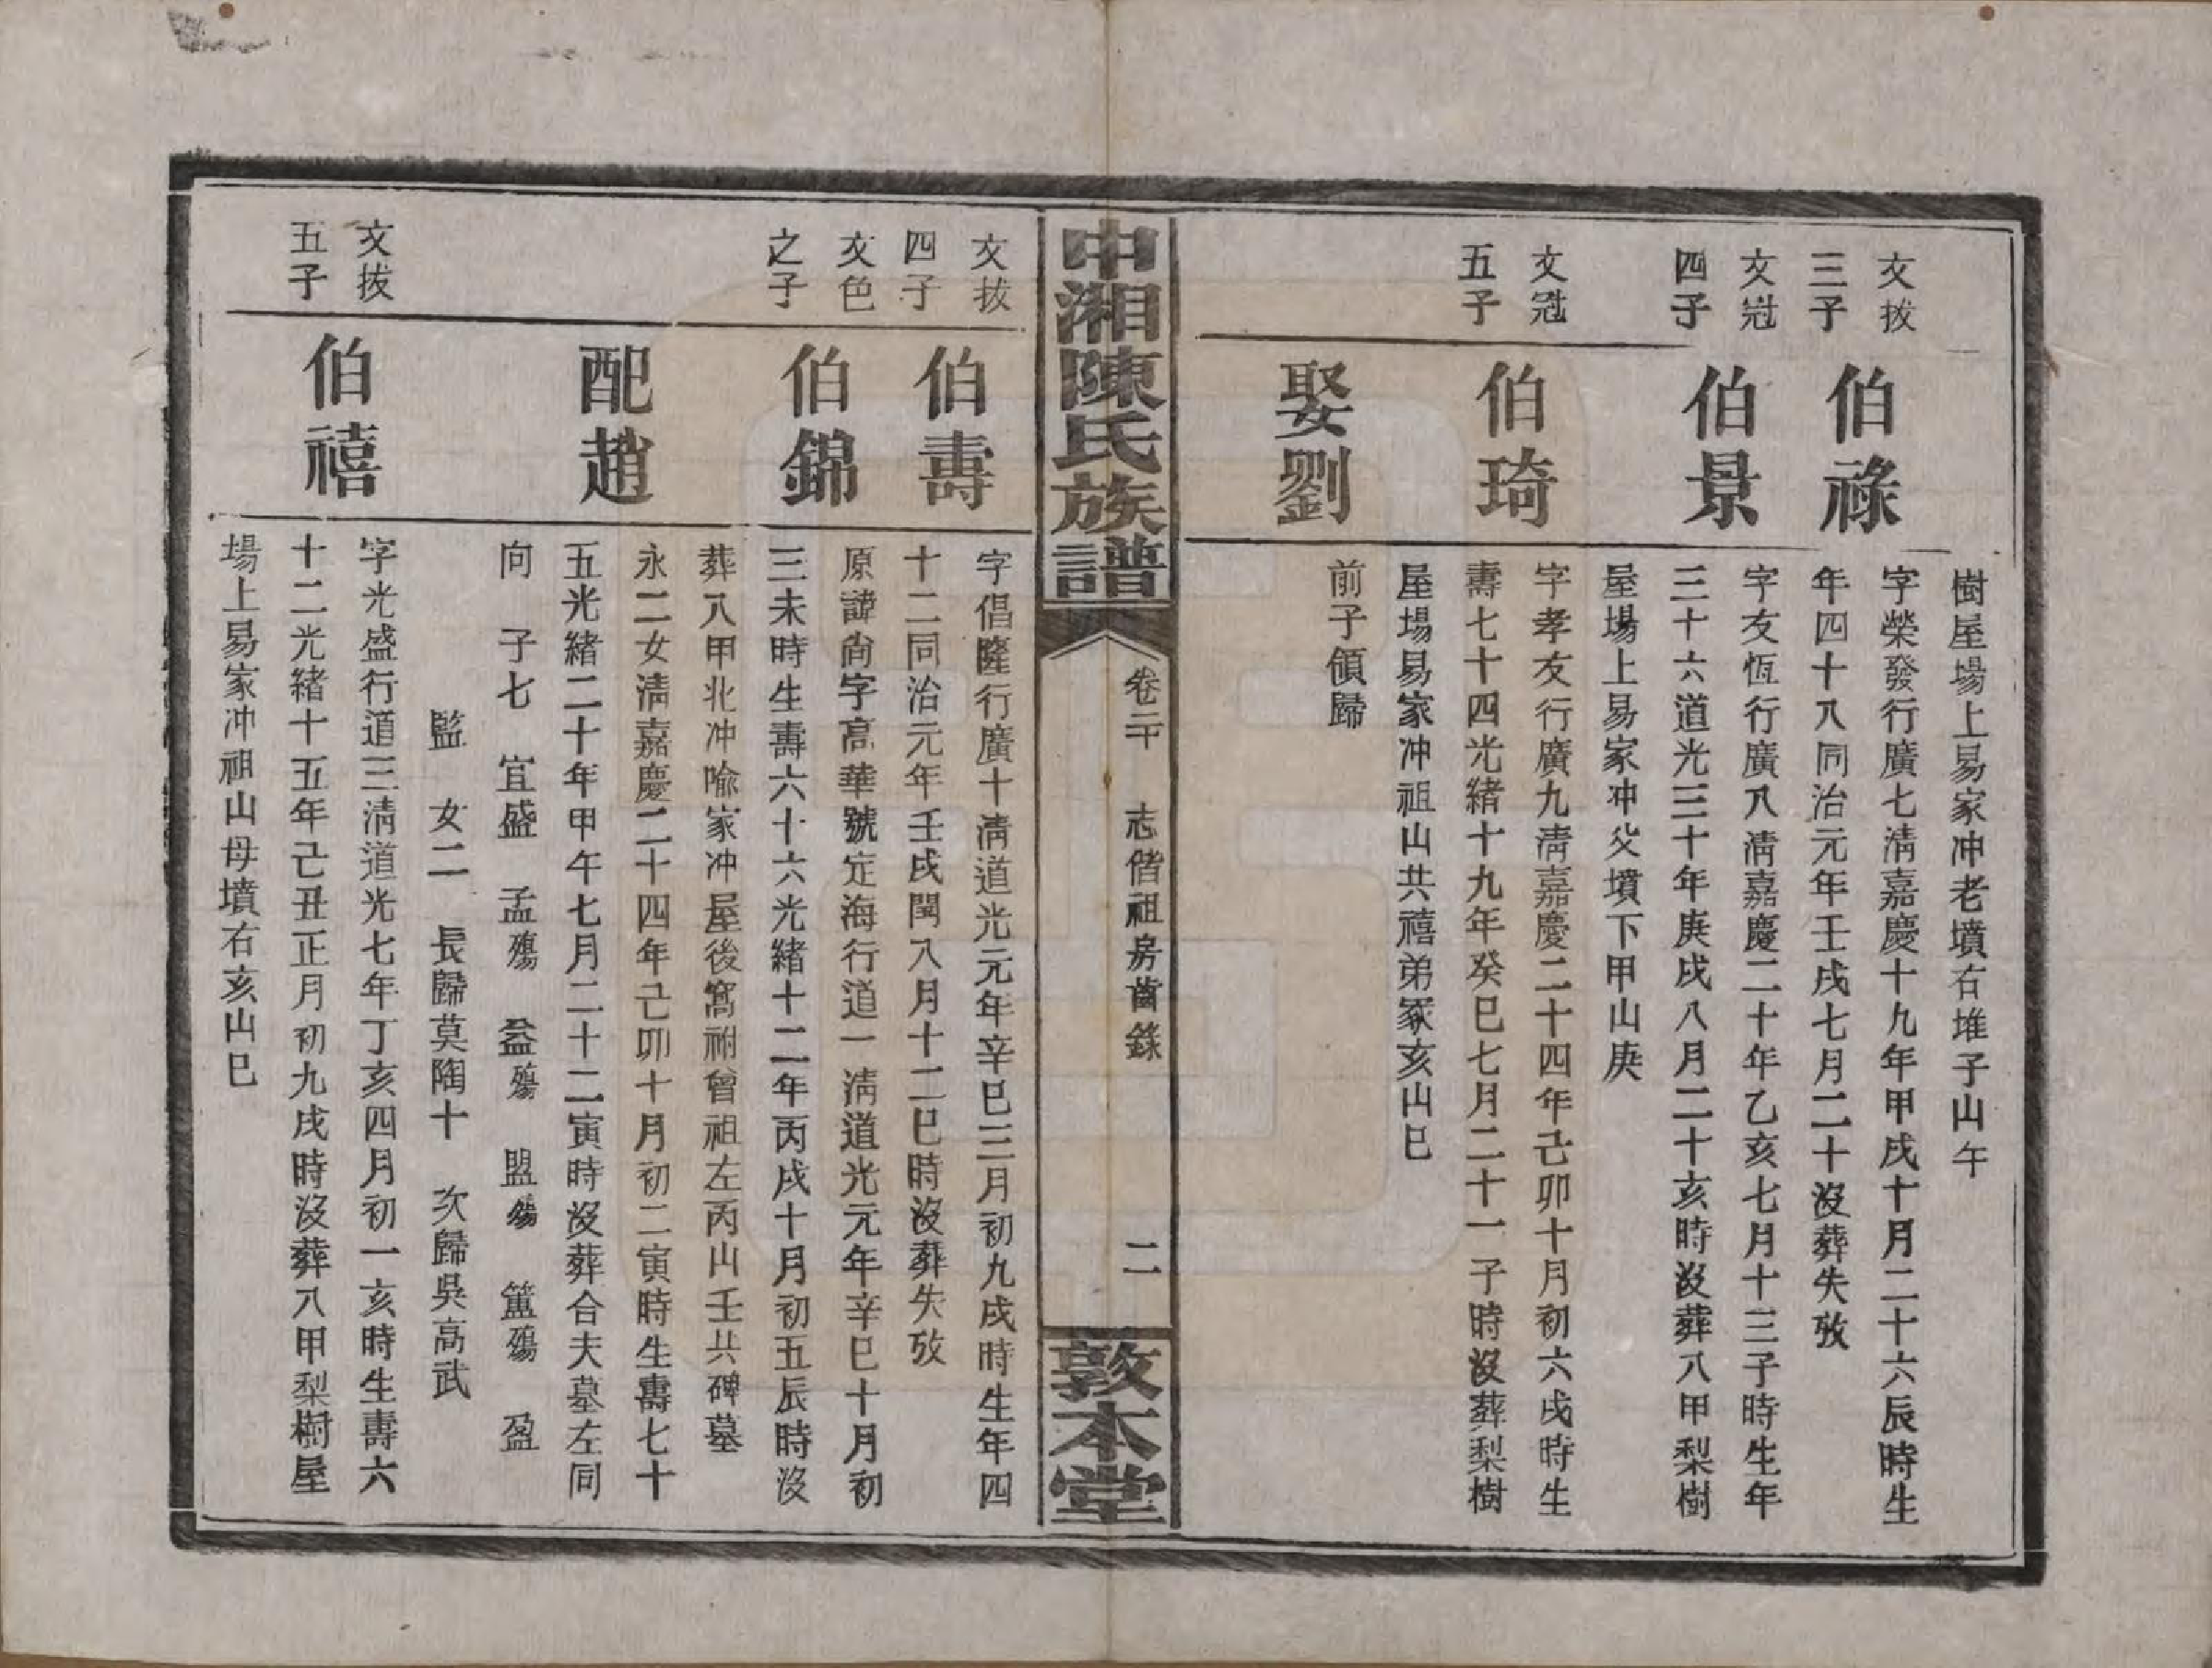 樹屋場上易家冲老墳右堆子山午
文拔
三子
伯祿
字榮發行廣七淸嘉慶十九年甲戌十月二十六辰時生
年四十八同治元年壬戌七月二十沒葬失攷
文冠
四子
伯景
字友恆行廣八淸嘉慶二十年乙亥七月十三子時生年
三十六道光三十年庚戌八月二十亥時沒葬八甲梨樹
屋場上易家冲父墳下甲山庚
文冠
五子
伯琦
字孝友行廣九淸嘉慶二十四年己卯十月初六戌時生
壽七十四光緒十九年癸巳七月二十一子時沒葬梨樹
屋場易家冲祖山共禧弟冢亥山巳
娶劉
前子領歸
中湘陳氏族譜
卷二十 志偕祖房齒錄
二
敦本堂
文拔
四子
伯壽
字倡隆行廣十淸道光元年辛巳三月初九戌時生年四
十二同治元年壬戌閏八月十二巳時沒葬失攷
文色
之子
伯錦
原諱尙字高華號定海行道一淸道光元年辛巳十月初
三未時生壽六十六光緒十二年丙戌十月初五辰時沒
葬八甲北冲喩家冲屋後窩祔曾祖左丙山壬共碑墓
配趙
永二女淸嘉慶二十四年己卯十月初二寅時生壽七十
五光緒二十年甲午七月二十二寅時沒葬合夫墓左同
向 子七 宜盛 孟殤 益殤 盟殤 籃殤 盈
監 女二 長歸莫陶十 次歸吳高武
文拔
五子
伯禧
字光盛行道三淸道光七年丁亥四月初一亥時生壽六
十二光緒十五年己丑正月初九戌時沒葬八甲梨樹屋
場上易家冲祖山母墳右亥山巳